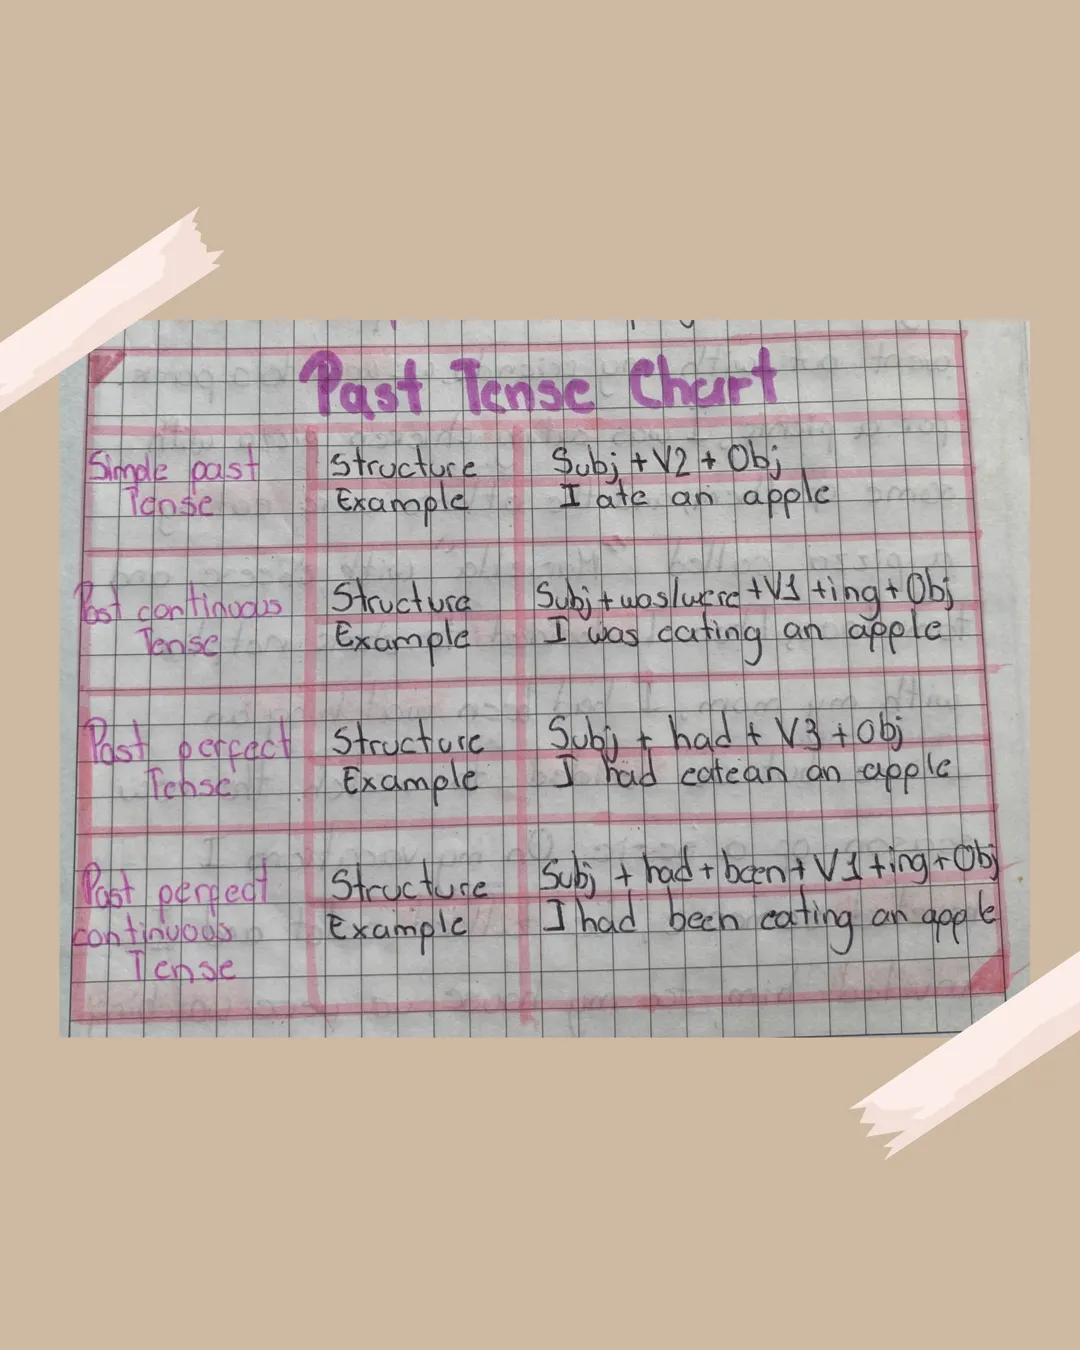 Past Tense Chart
Simple past Tense
Structure Subj + V2 + Obj
Example I ate an apple
Past continuous Tense
Structure Subj + was/were + V1 + ing + Obj
Example I was eating an apple
Past perfect Tense
Structure Subj + had + V3 + obj
Example I had eatean an apple
Past perfect continuous Tense
Structure Subj + had + been + V1 + ing + Obj
Example I had been eating an apple